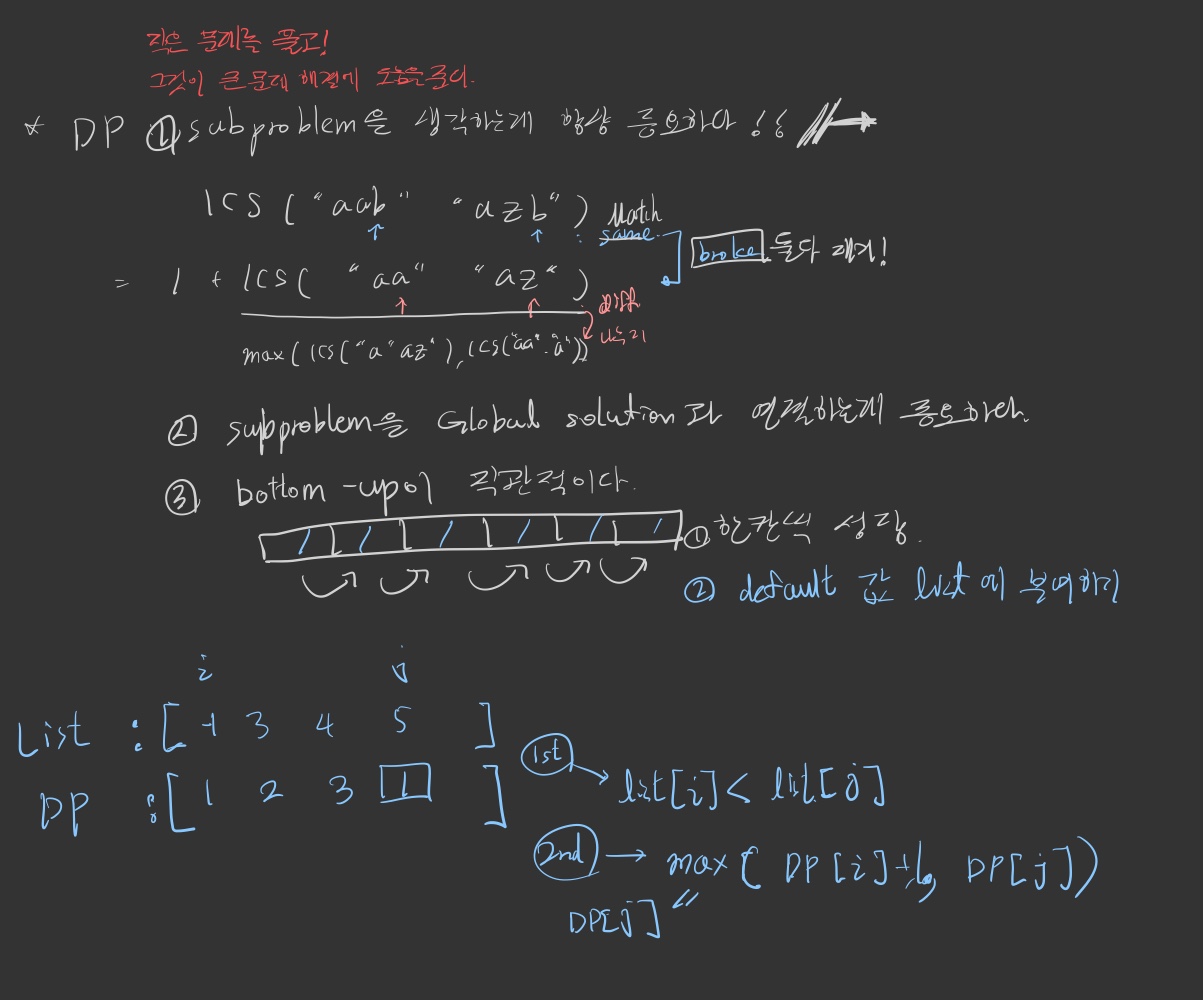 작은 문제를 풀고!
그것이 큰 문제 해결에 도움을 준다.
* DP ① subproblem을 생각하는게 항상 중요하다!!
lCS ( "aab" "azb" ) Match
same
broke 둘다 제거!
= 1 + lCS( "aa" "az" )
max( lCS("a" "az"), lCS("aa", "a"))
나누기
② subproblem을 Global solution과 연결하는게 중요하다.
③ bottom-up이 직관적이다.
① 한칸씩 성장.
② default 값 list에 부여하기
i j
List : [ -1 3 4 5 ]
DP : [ 1 2 3 1 ]
1st → list[i] < list[j]
2nd → max( DP[i]+1, DP[j])
DP[j] "